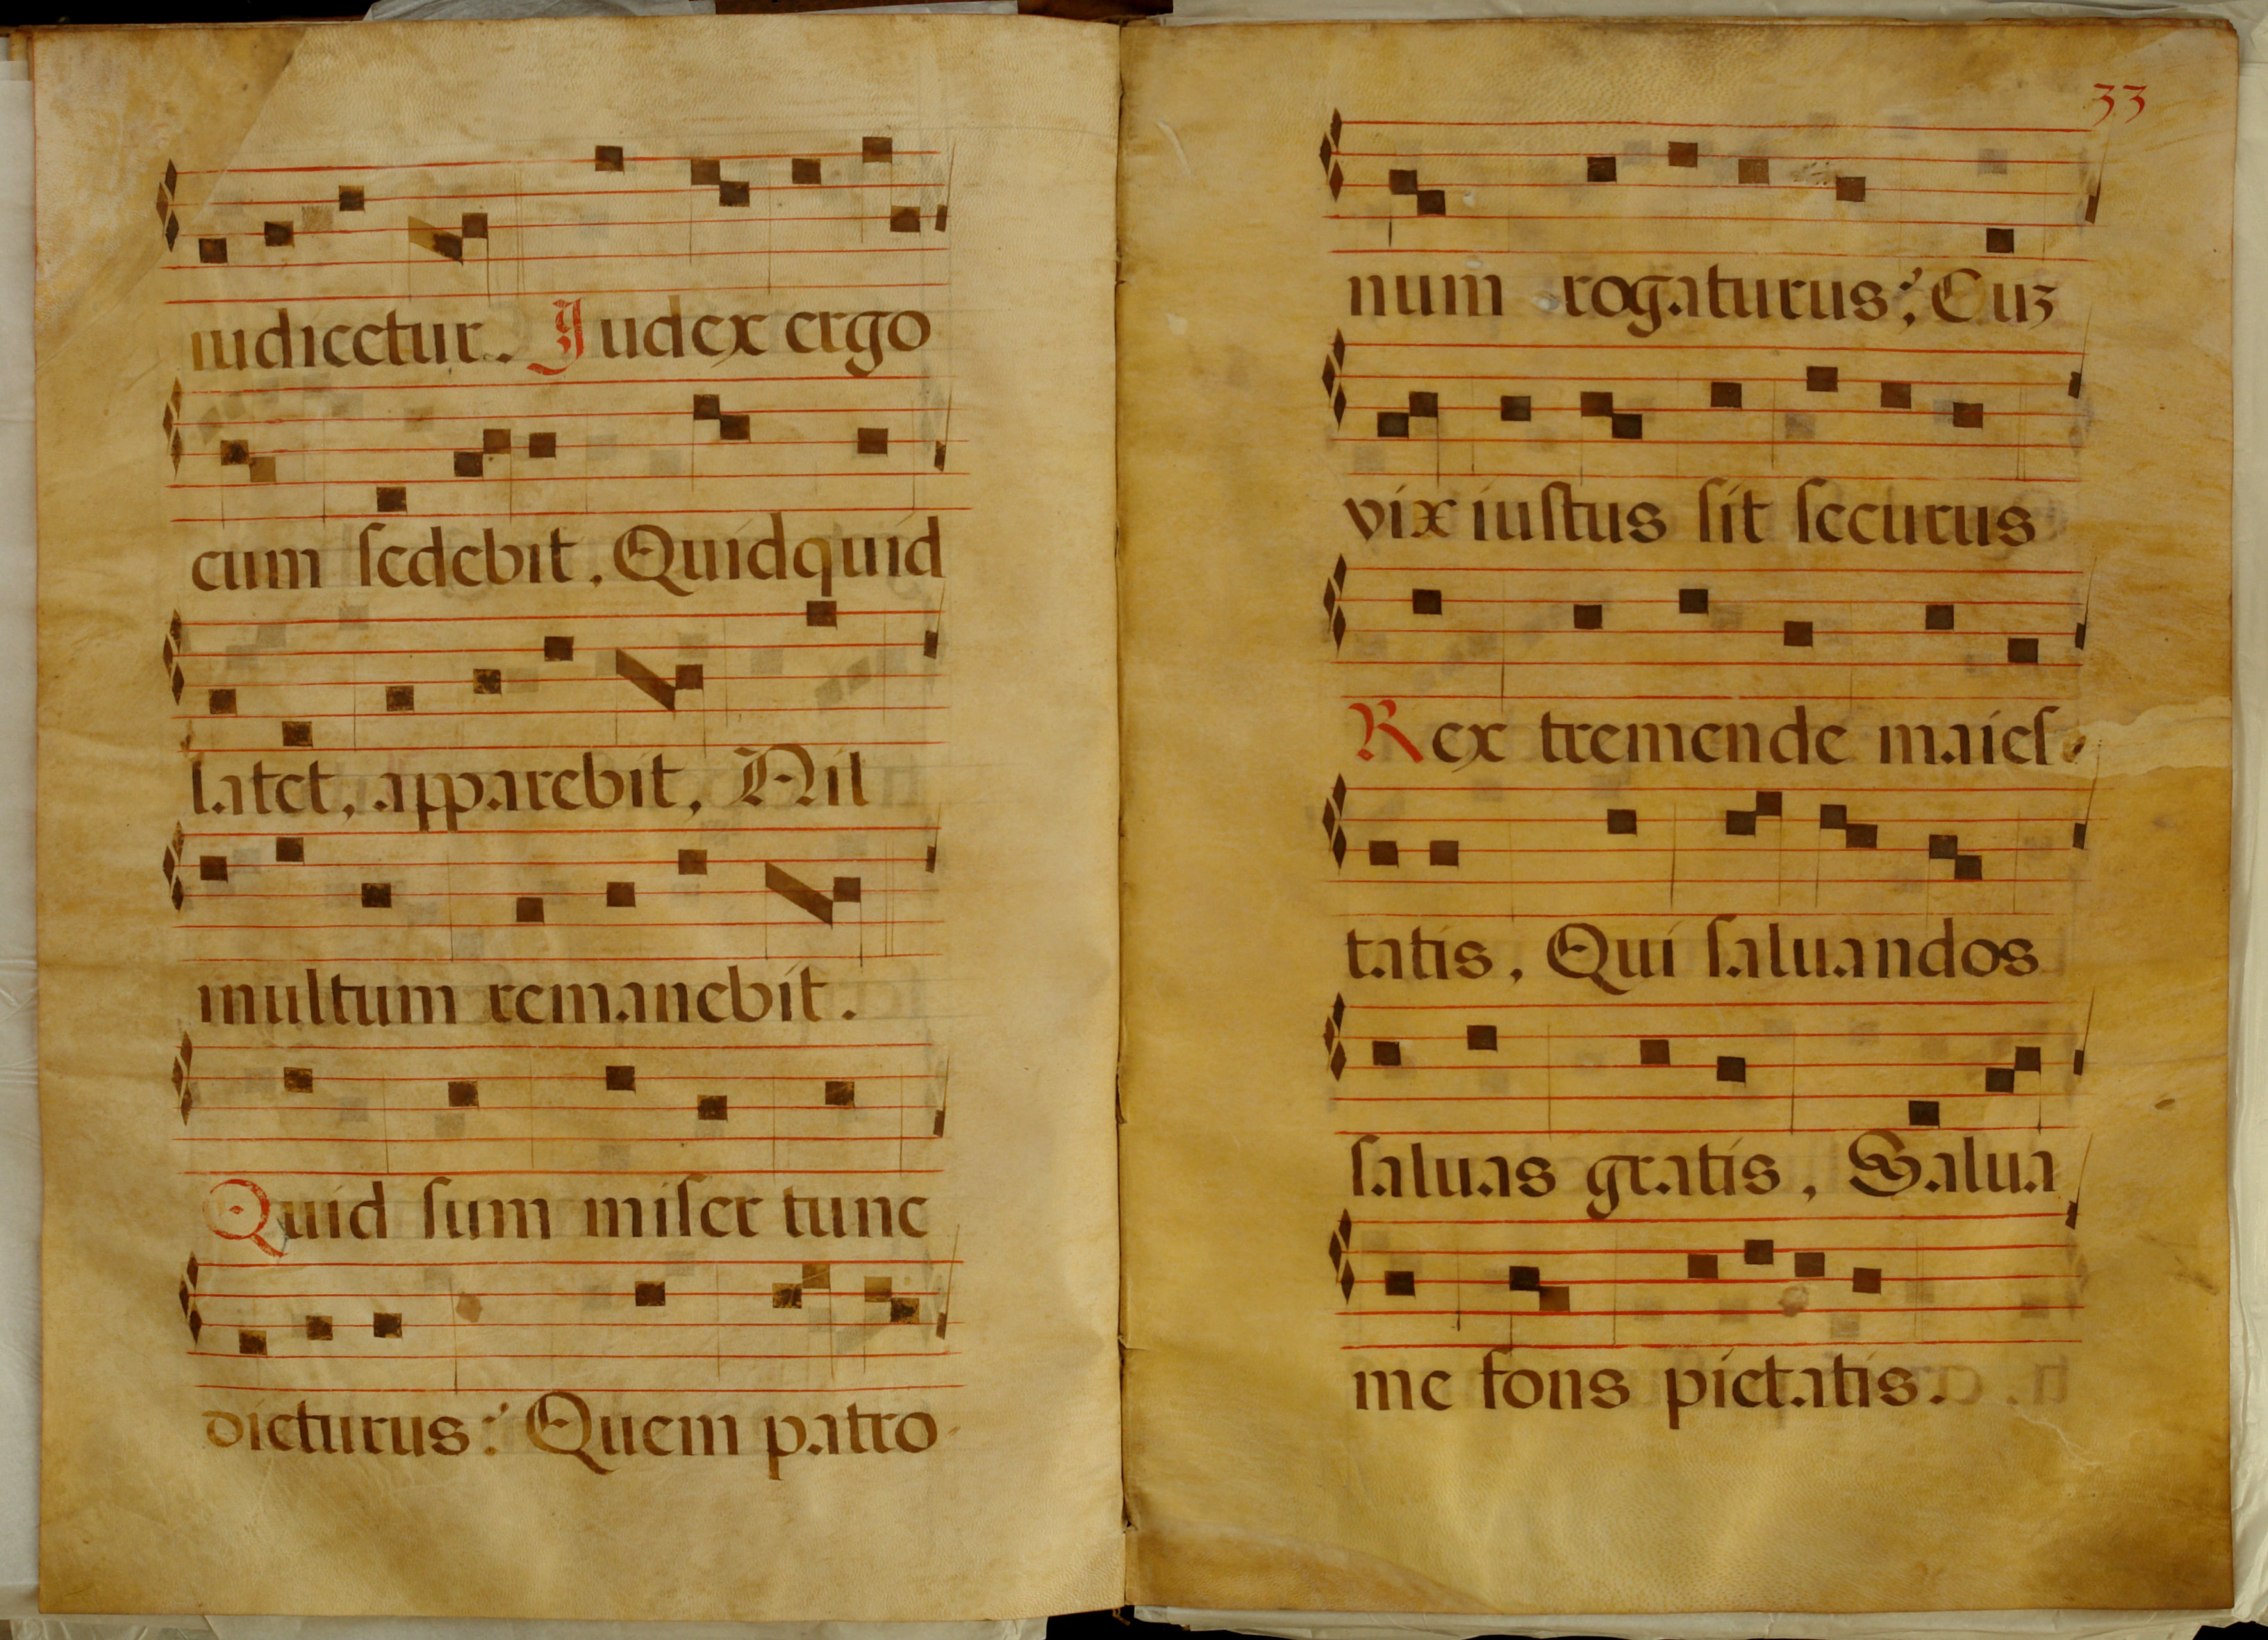 iudicetur. Iudex ergo
cum ſedebit. Quidquid
latet, apparebit, Nil
multum remanebit.
Quid ſum miſer tunc
dicturus: Quem patro-
33
num rogaturus; Cuʒ
vix iuſtus ſit ſecurus
Rex tremende maieſ-
tatis, Qui ſaluandos
ſaluas gratis, Salua
me fons pietatis.